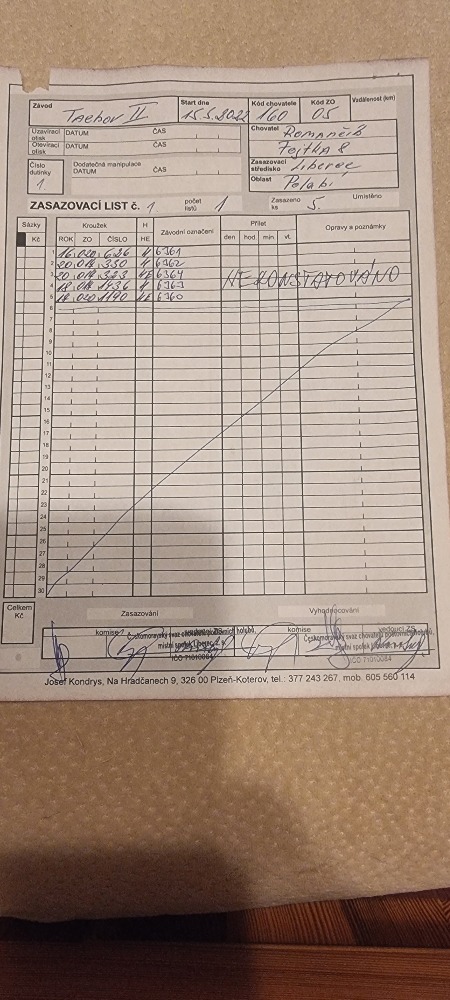 Závod Start dne Kód chovatele Kód ZO Vzdálenost (km)
Tachov II 15.5.2022 160 05
Uzavírací otisk DATUM ČAS Chovatel Romančík
Otevírací otisk DATUM ČAS Fejtka
Číslo dutinky 1 Dodatečná manipulace DATUM ČAS Zasazovací středisko Liberec
Oblast Polabí
ZASAZOVACÍ LIST č. 1 počet listů 1 Zasazeno ks 5. Umístěno
Sázky Kroužek H Závodní označení Přílet Opravy a poznámky
Kč ROK ZO ČÍSLO HE den hod. min vt.
1 16 020 626 H 6361
2 20 018 330 H 6362
3 20 018 323 HE 6364 NEKONSTATOVÁNO
4 18 018 1436 H 6363
5 18 020 1190 HE 6360
6
7
8
9
10
11
12
13
14
15
16
17
18
19
20
21
22
23
24
25
26
27
28
29
30
Celkem Kč Zasazování Vyhodnocování
komise komise vedoucí ZS
Českomoravský svaz chovatelů poštovních holubů,
místní spolek
IČO 71010084
Josef Kondrys, Na Hradčanech 9, 326 00 Plzeň-Koterov, tel.: 377 243 267, mob. 605 560 114